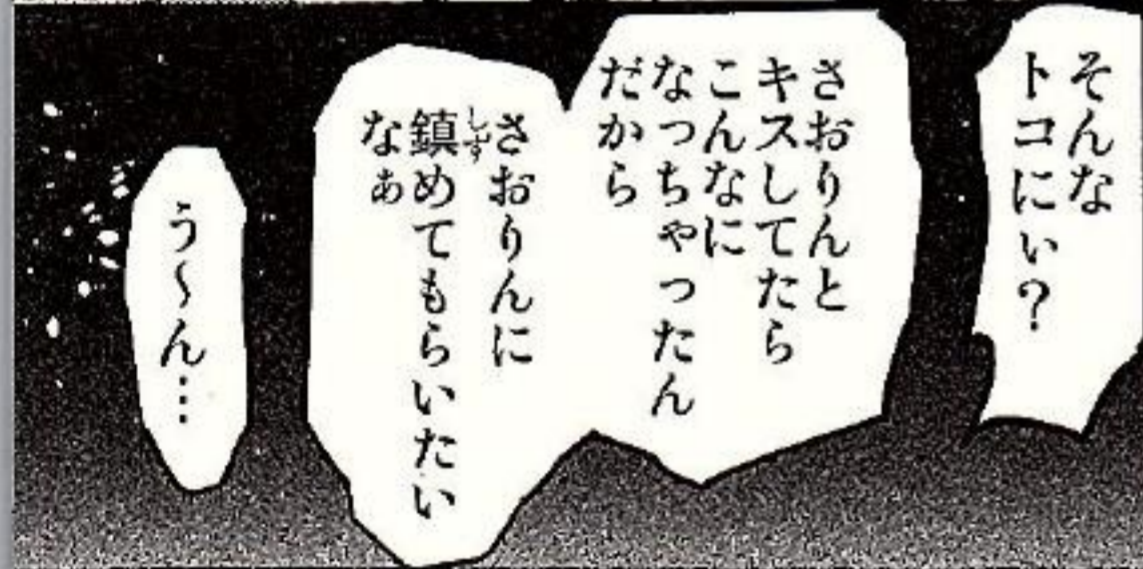 そんな
トコにぃ?
さおりんと
キスしてたら
こんなに
なっちゃったん
だから
さおりんに
鎮めてもらいたい
しず
なぁ
う～ん…